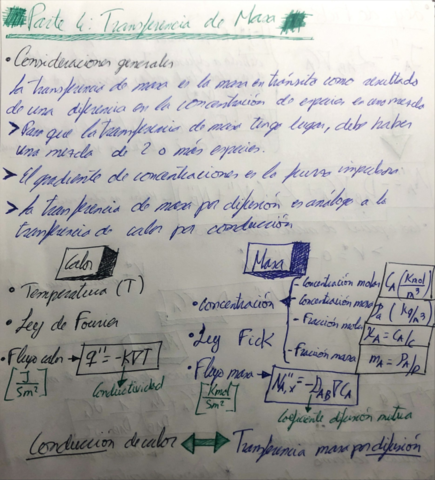 Parte 4: Transferencia de Masa
• Consideraciones generales
La transferencia de masa es la masa en tránsito como resultado
de una diferencia en la concentración de especies en una mezcla
> Para que la transferencia de masa tenga lugar, debe haber
una mezcla de 2 o más especies.
> El gradiente de concentraciones es la fuerza impulsora.
> La transferencia de masa por difusión es análoga a la
transferencia de calor por conducción
Calor
• Temperatura (T)
• Ley de Fourier
• Flujo calor → q'' = -K∇T
[J/Sm²]
Conductividad
Masa
• Concentración
- Concentración molar C_A (Kmol/m³)
- Concentración masa (Kg/m³)
- Fracción molar X_A = C_A/C
- Fracción masa m_A = ρ_A/ρ
• Ley Fick
• Flujo masa → N''_A,x = -D_AB ∇C_A
[Kmol/Sm²]
Coeficiente difusión mutua
Conducción de calor ⟺ Transferencia masa por difusión